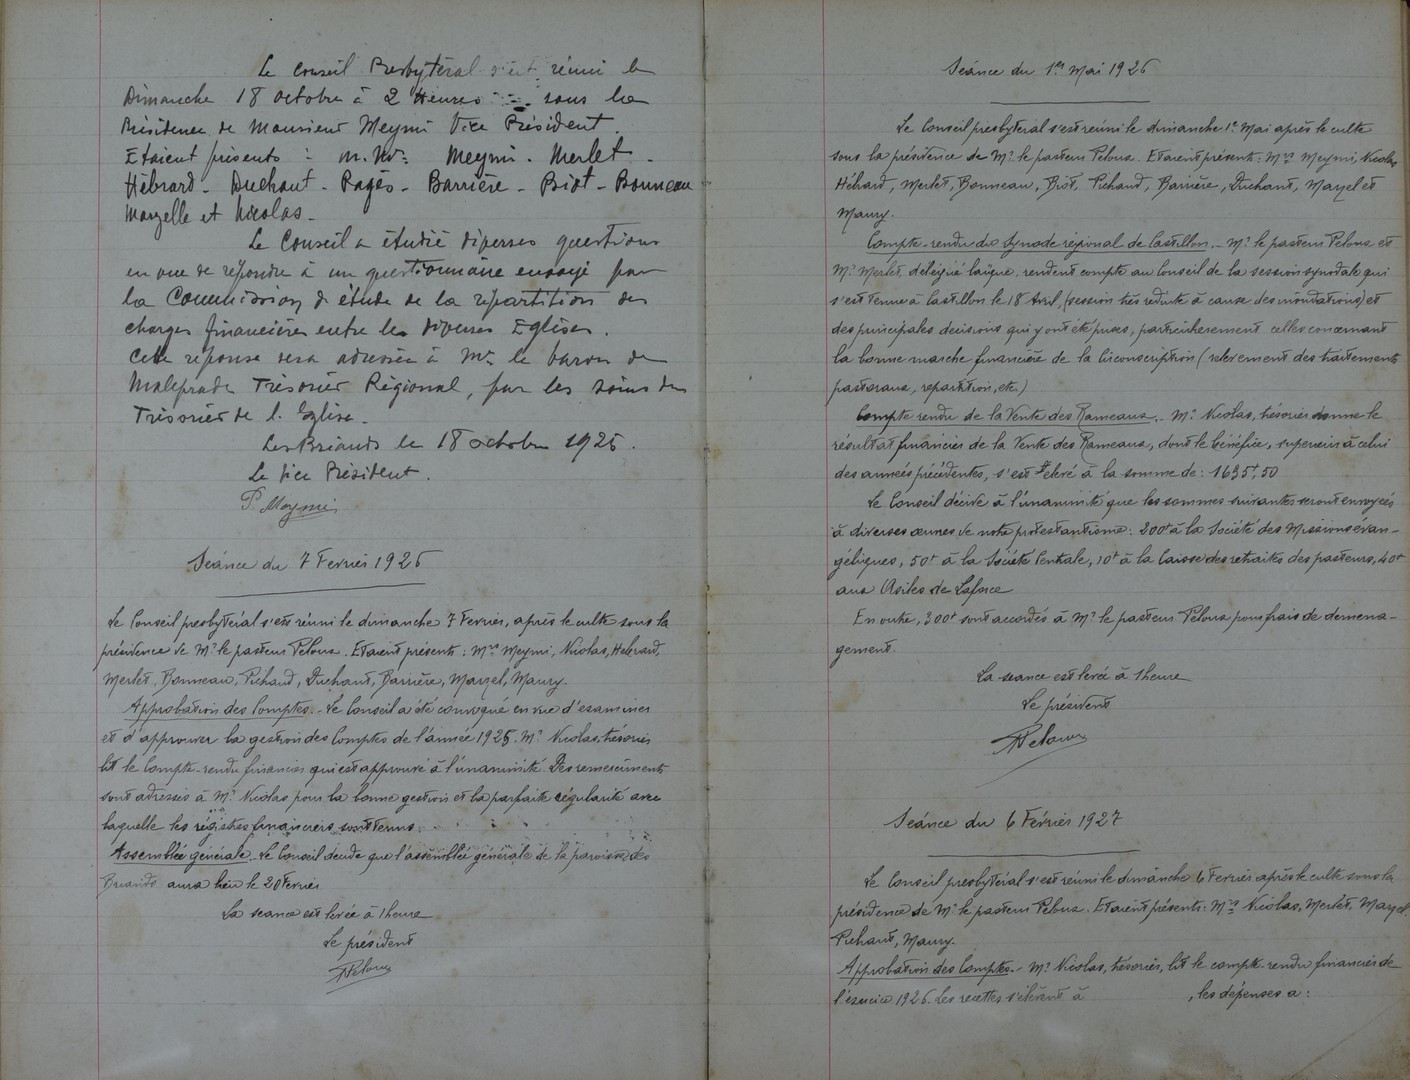 Le Conseil Presbytéral s'est réuni le
Dimanche 18 octobre à 2 Heures sous la
Présidence de Monsieur Meymi Vice Président.
Etaient présents : M.Mrs: Meymi - Merlet -
Hébrard - Duchaut - Pagès - Barrière - Biot - Bonneau
Marzelle et Nicolas -
Le Conseil a étudié diverses questions
en vue de répondre à un questionnaire envoyé par
la Commission d'étude de la répartition des
charges financières entre les diverses Eglises.
Cette réponse sera adressée à Mr le baron de
Maleprade Trésorier Régional, par les soins du
Trésorier de l'Eglise.
Les Briands le 18 octobre 1925.
Le Vice Président.
P. Meymi
Séance du 7 Fevrier 1926
Le Conseil presbytéral s'est réuni le dimanche 7 Fevrier, après le culte sous la
présidence de Mr le pasteur Peloux. Etaient présents: Mrs Meymi, Nicolas, Hebrard,
Merlet, Bonneau, Pichaud, Duchaut, Barrière, Marzel, Maury.
Approbation des Comptes. - Le Conseil a été convoqué en vue d'examiner
et d'approuver la gestion des Comptes de l'année 1925. Mr Nicolas, trésorier
lit le Compte-rendu financier qui est approuvé à l'unanimité. Des remerciments
sont adressés à Mr Nicolas pour la bonne gestion et la parfaite régularité avec
laquelle les régistres financiers sont tenus.
Assemblée générale. - Le Conseil decide que l'assemblée générale de la paroisse des
Briands aura lieu le 20 Fevrier
La seance est levée à 1 heure
Le président
Peloux
Séance du 1er Mai 1926
Le Conseil presbytéral s'est réuni le dimanche 1er Mai après le culte
sous la présidence de Mr le pasteur Peloux. Etaient présents: Mrs Meymi, Nicolas
Hébrard, Merlet, Bonneau, Biot, Pichaud, Barrière, Duchaut, Marzel et
Maury.
Compte-rendu du Synode régional de Castillon. - Mr le pasteur Peloux et
Mr Merlet, délégué laïque, rendent compte au Conseil de la session synodale qui
s'est tenue à Castillon le 18 Avril, (session très reduite à cause des inondations) et
des principales decisions qui y ont été prises, particulierement celles concernant
la bonne marche financière de la Circonscription (relèvement des traitements
pastoraux, repartition, etc)
Compte rendu de la Vente des Rameaux. - Mr Nicolas, trésorier donne le
résultat financier de la Vente des Rameaux, dont le bénéfice, superieur à celui
des années précédentes, s'est élevé à la somme de : 1635f,50
Le Conseil décide à l'unanimité que les sommes suivantes seront envoyées
à diverses œuvres de notre protestantisme: 200f à la Société des Missions évan-
géliques, 50f à la Société Centrale, 10f à la Caisse des retraites des pasteurs, 40f
aux Asiles de Laforce
En outre, 300f sont accordés à Mr le pasteur Peloux pour frais de demena-
gement.
La seance est levée à 1 heure
Le président
Peloux
Séance du 6 Février 1927
Le Conseil presbytéral s'est réuni le dimanche 6 Fevrier après le culte sous la
présidence de Mr le pasteur Peloux. Etaient présents: Mrs Nicolas, Merlet, Marzel,
Pichaud, Maury.
Approbation des Comptes. - Mr Nicolas, trésorier, lit le compte-rendu financier de
l'exercice 1926. Les recettes s'élèvent à , les dépenses a :